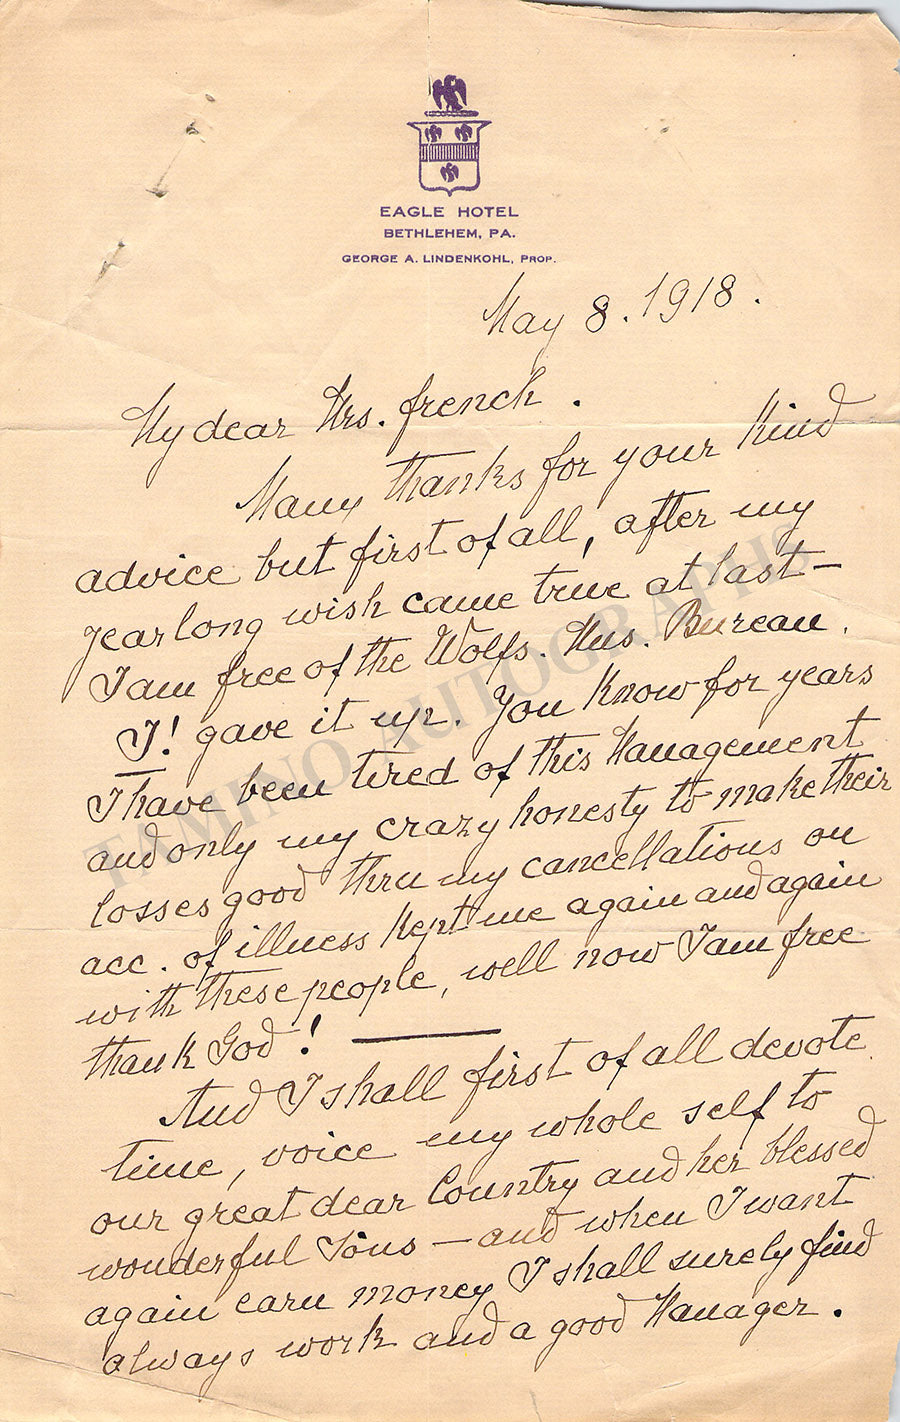 EAGLE HOTEL
BETHLEHEM, PA.
GEORGE A. LINDENKOHL, PROP.
May 8. 1918.
My dear Mrs. french.
Many thanks for your kind
advice but first of all, after my
yearlong wish came true at last —
I am free of the Wolfs. Mus. Bureau.
I! gave it up. You know for years
I have been tired of this Management
and only my crazy honesty to make their
losses good thru my cancellations on
acc. of illness kept me again and again
with these people, well now I am free
thank God! —
And I shall first of all devote
time, voice my whole self to
our great dear Country and her blessed
wonderful Sons — and when I want
again earn money I shall surely find
always work and a good Manager.
TAMINO AUTOGRAPHS